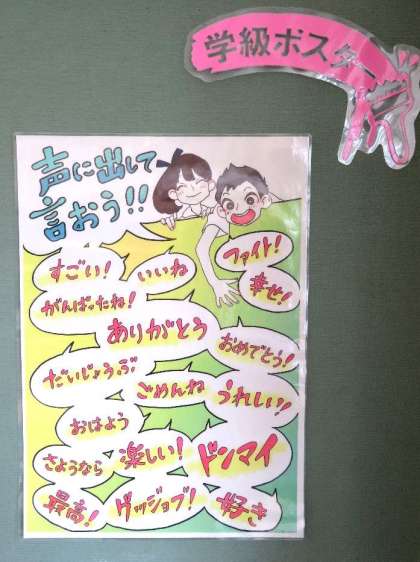 学級ポスター
声に出して
言おう!!
すごい!
いいね
ファイト!
がんばったね!
幸せ!
ありがとう
おめでとう!
だいじょうぶ
ごめんね
うれしい!!
おはよう
さようなら
楽しい!
ドンマイ
最高!
グッジョブ!
好き